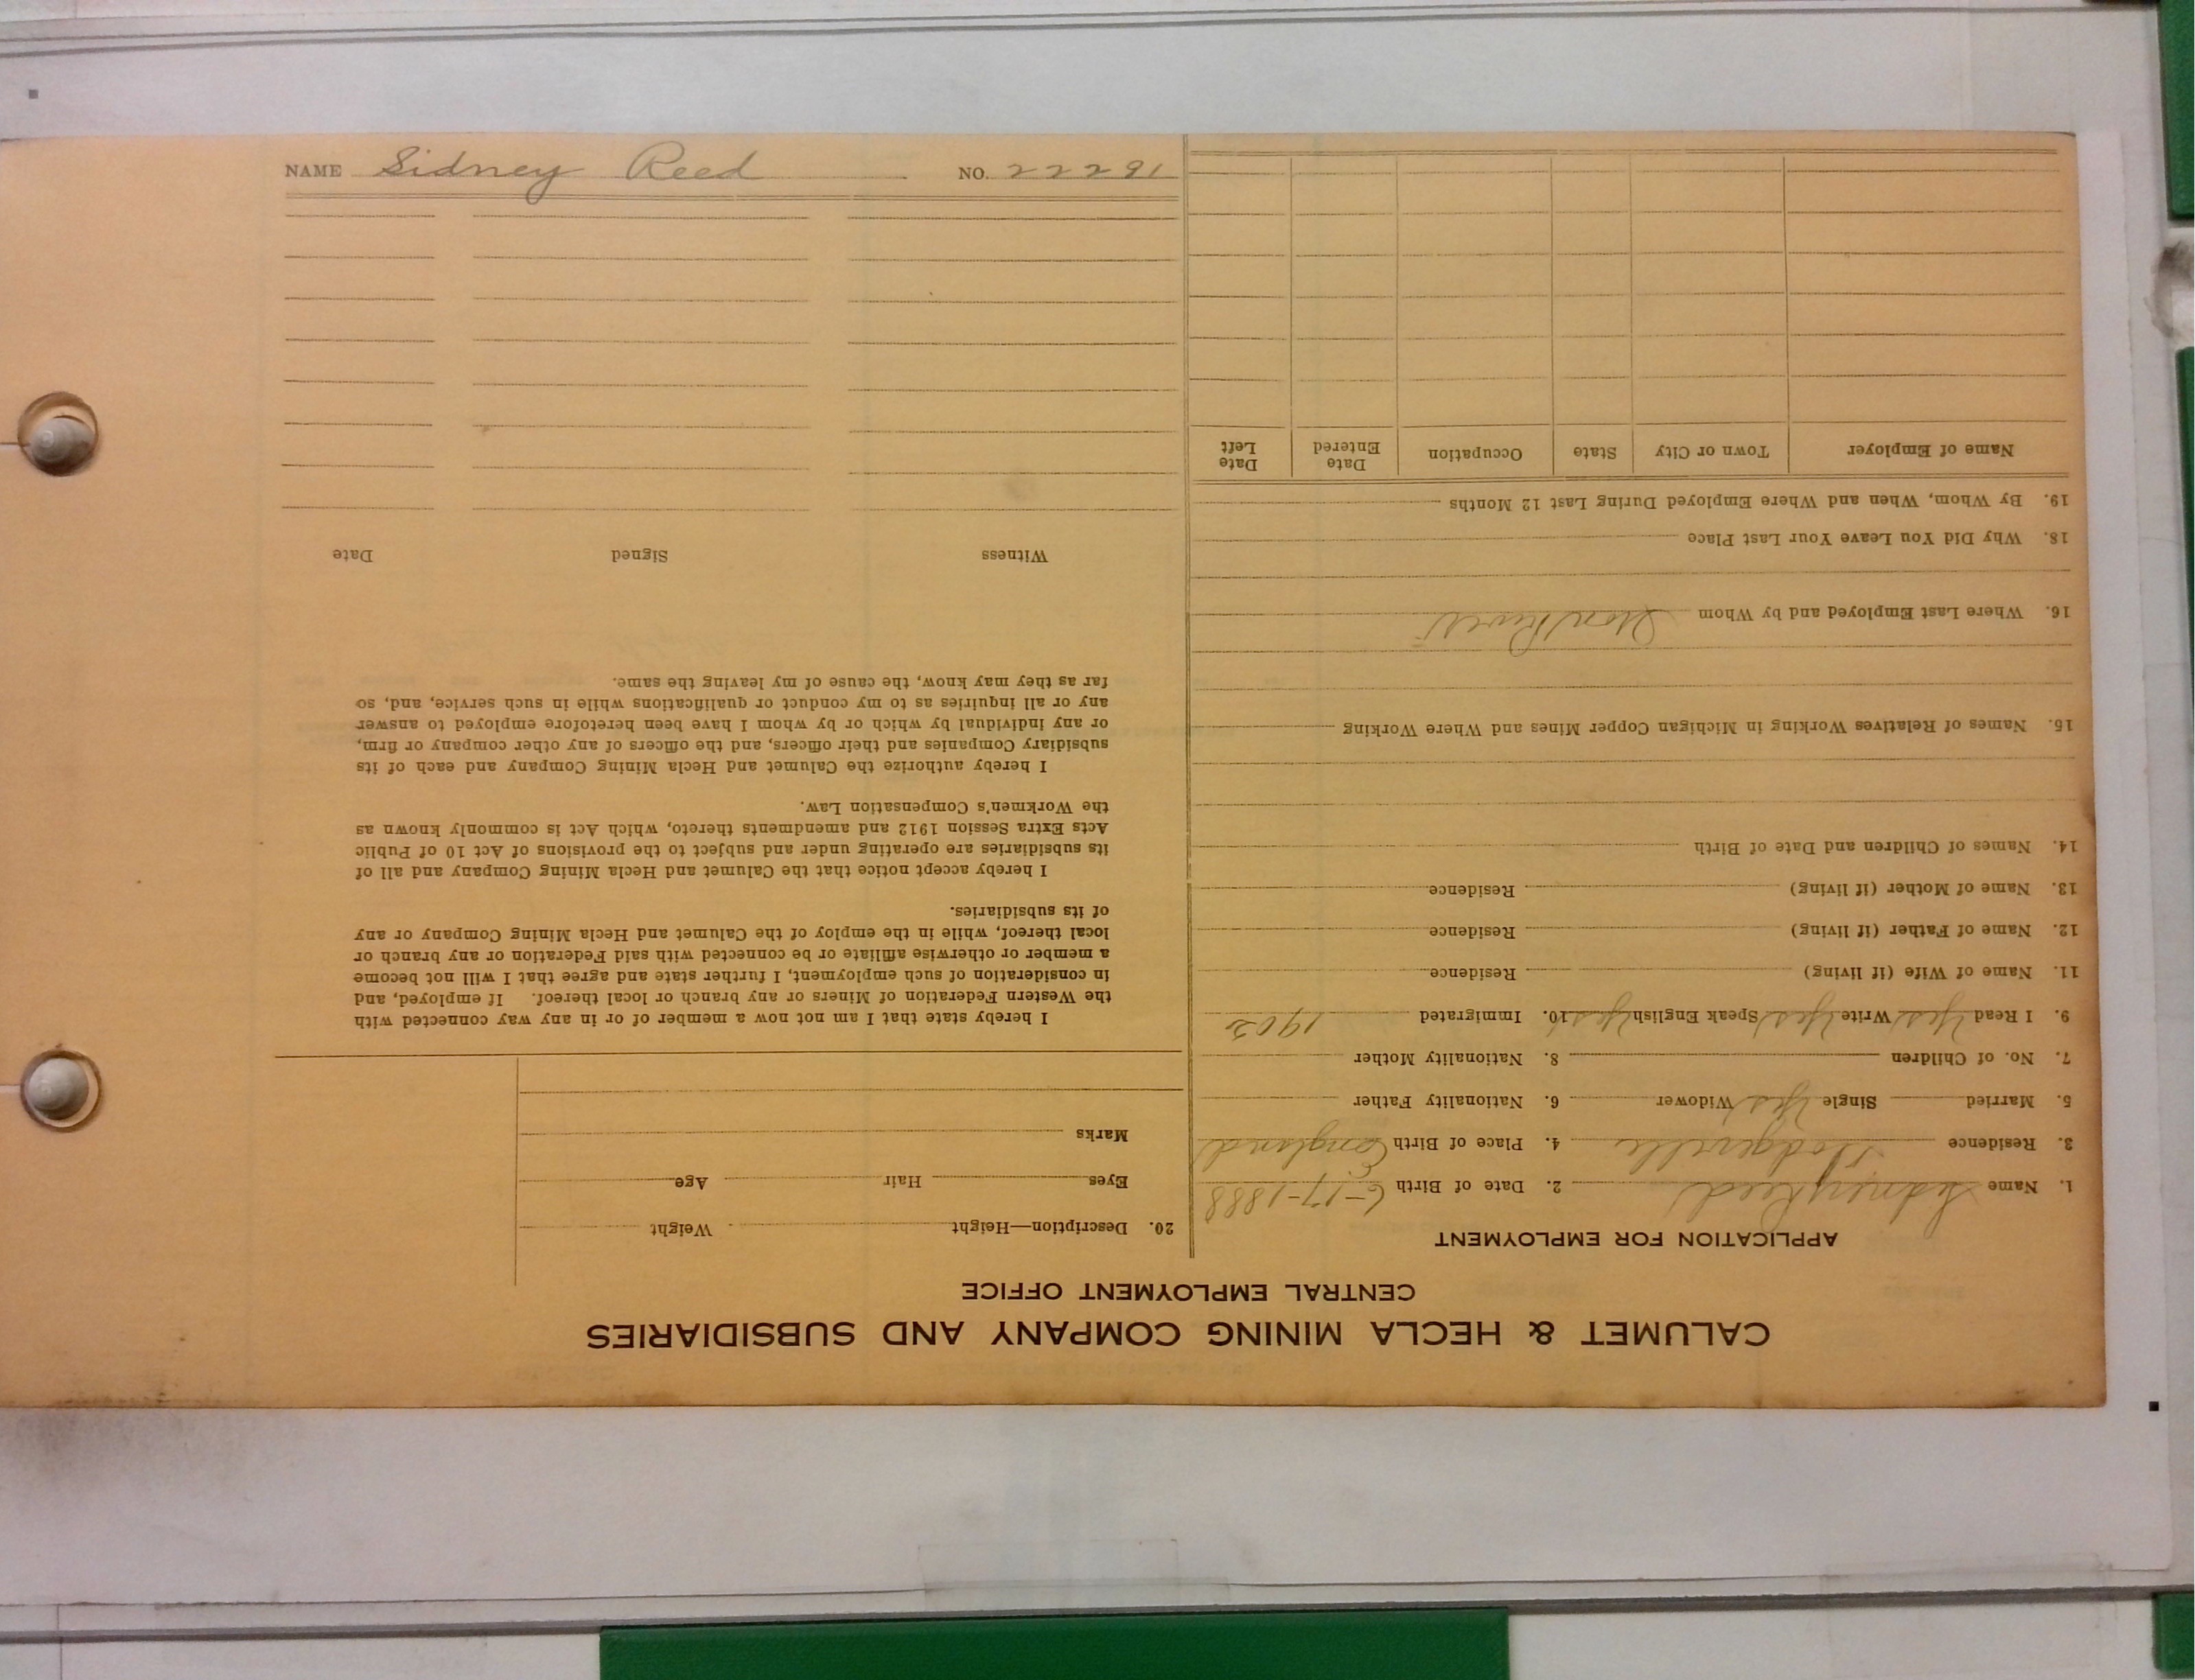 NAME Sidney Reed NO. 22291
CALUMET & HECLA MINING COMPANY AND SUBSIDIARIES
CENTRAL EMPLOYMENT OFFICE
APPLICATION FOR EMPLOYMENT
1. Name Sidney Reed 2. Date of Birth 6-17-1888
3. Residence Dodgeville 4. Place of Birth England
5. Married Single Yes Widower 6. Nationality Father
7. No. of Children 8. Nationality Mother
9. I Read Yes Write Yes Speak English Yes 10. Immigrated 1902
11. Name of Wife (if living) Residence
12. Name of Father (if living) Residence
13. Name of Mother (if living) Residence
14. Names of Children and Date of Birth
15. Names of Relatives Working in Michigan Copper Mines and Where Working
16. Where Last Employed and by Whom Iron River
18. Why Did You Leave Your Last Place
19. By Whom, When and Where Employed During Last 12 Months
Name of Employer Town or City State Occupation Date Entered Date Left
20. Description—Height Weight
Eyes Hair Age
Marks
I hereby state that I am not now a member of or in any way connected with
the Western Federation of Miners or any branch or local thereof. If employed, and
in consideration of such employment, I further state and agree that I will not become
a member or otherwise affiliate or be connected with said Federation or any branch or
local thereof, while in the employ of the Calumet and Hecla Mining Company or any
of its subsidiaries.
I hereby accept notice that the Calumet and Hecla Mining Company and all of
its subsidiaries are operating under and subject to the provisions of Act 10 of Public
Acts Extra Session 1912 and amendments thereto, which Act is commonly known as
the Workmen's Compensation Law.
I hereby authorize the Calumet and Hecla Mining Company and each of its
subsidiary Companies and their officers, and the officers of any other company or firm,
or any individual by which or by whom I have been heretofore employed to answer
any or all inquiries as to my conduct or qualifications while in such service, and, so
far as they may know, the cause of my leaving the same.
Witness Signed Date